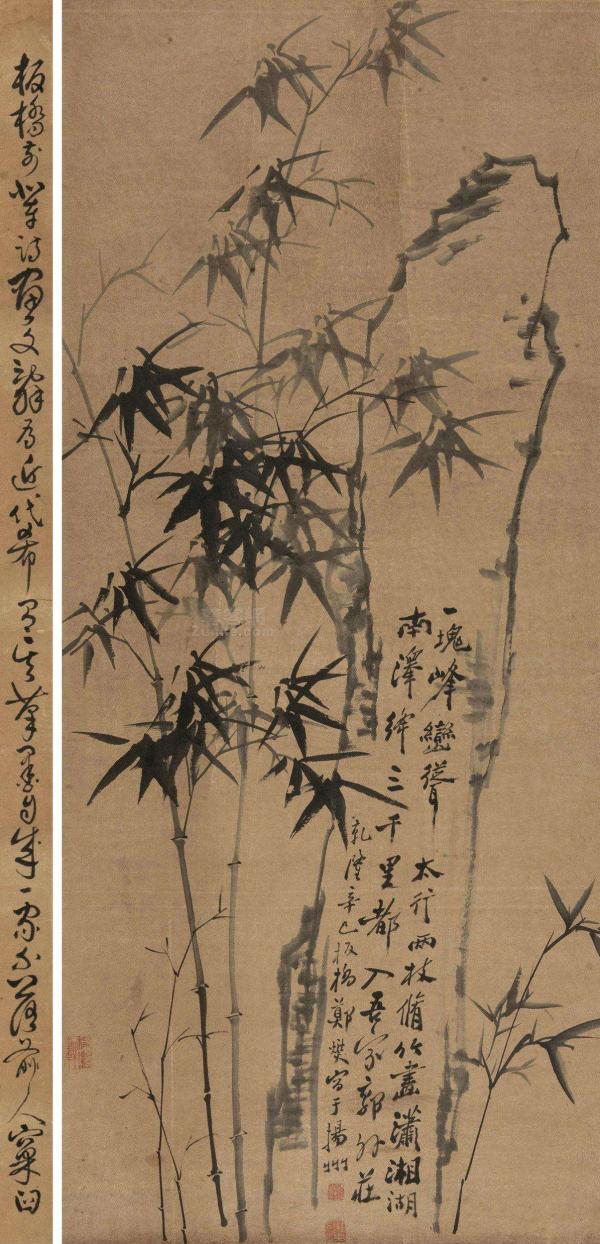 一塊峰巒聳太行兩枝脩竹畫瀟湘湖
南澤絳三千里都入吾家郭外莊
乾隆辛巳板橋鄭燮寫于揚州
板橋前輩詩畫文辭為近代希有其筆墨自成一家不落前人窠臼